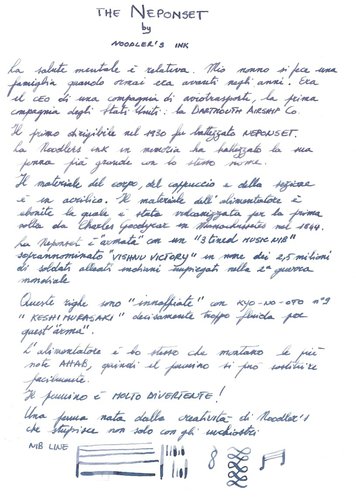 THE NEPONSET
by
NOODLER'S INK
La salute mentale è relativa. Mio nonno si fece una
famiglia quando ormai era avanti negli anni. Era
il CEO di una compagnia di aviotrasporti, la prima
compagnia degli Stati Uniti: la DARTMOUTH AIRSHIP Co.
Il primo dirigibile nel 1930 fu battezzato NEPONSET.
La Noodlers ink in memoria ha battezzato la sua
penna più grande con lo stesso nome.
Il materiale del corpo, del cappuccio e della sezione
è in acrilico. Il materiale dell'alimentatore è
ebanite la quale è stata vulcanizzata per la prima
volta da Charles Goodyear in Massachusettes nel 1844.
La Neponset è "armata" con un "3 tined MUSIC NIB"
soprannominato "VISHNU VICTORY" in nome dei 2,5 milioni
di soldati alleati indiani impiegati nella 2ª guerra
mondiale
Queste righe sono "innaffiate" con KYO-NO-OTO n°3
"KESHIMURASAKI" decisamente troppo fluida per
quest'"arma".
L'alimentatore è lo stesso che montano le più
note AHAB, quindi il pennino si può sostituire
facilmente.
Il pennino è MOLTO DIVERTENTE!
Una penna nata dalla creatività di Noodler's
che stupisce non solo con gli inchiostri
NIB LINE